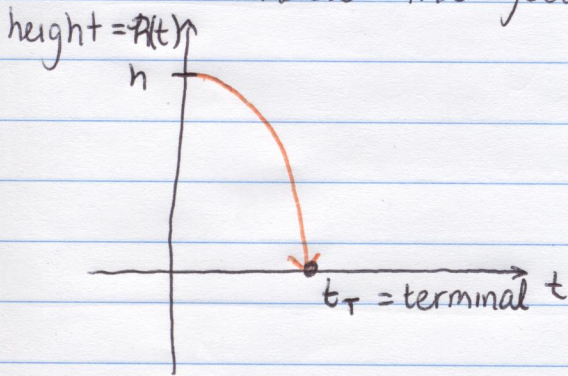 height = h(t)
h
t_T = terminal t